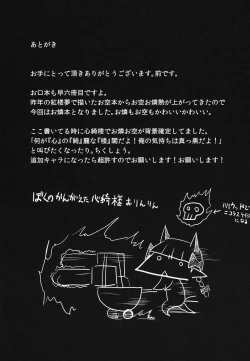 あとがき
お手にとって頂きありがとうございます。前です。
お口本も早六冊目ですよ。
昨年の紅楼夢で描いたお空本からお空お燐熱が上がってきたので
今回はお燐本となりました。お燐もお空もかわいいかわいい。
ここ書いてる時に心綺楼でお燐お空が背景確定してました。
「何が『心』の『綺』麗な『楼』閣だよ！俺の気持ちは真っ黒だよ！」
と叫びたくなったわ、ちくしょう。
追加キャラになったら超許すのでお願いします！お願いします！
ぼくのかんがえた心綺楼おりんりん